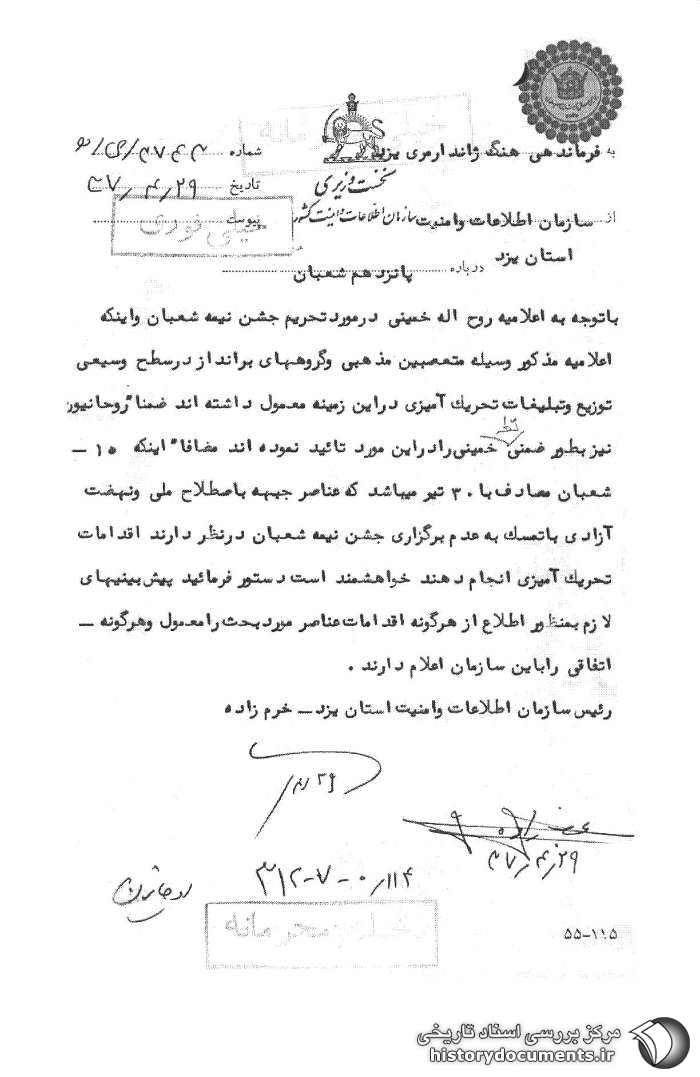 خیلی محرمانه
به فرماندهی هنگ ژاندارمری یزد
شماره
نخست وزیری
تاریخ ۳۷/۴/۲۹
سازمان اطلاعات و امنیت کشور
از سازمان اطلاعات وامنیت
پیوست
خیلی فوری
استان یزد
درباره پانزدهم شعبان
باتوجه به اعلامیه روح اله خمینی درمورد تحریم جشن نیمه شعبان واینکه
اعلامیه مذکور وسیله متعصبین مذهبی وگروههای برانداز درسطح وسیعی
توزیع وتبلیغات تحریك آمیزی دراین زمینه معمول داشته اند ضمنا" روحانیون
نیز بطور ضمنی نظر خمینی رادراین مورد تائید نموده اند مضافا" اینکه ۱۵ –
شعبان مصادف با ۳۰ تیر میباشد که عناصر جبهه باصطلاح ملی ونهضت
آزادی باتمسك به عدم برگزاری جشن نیمه شعبان درنظر دارند اقدامات
تحریك آمیزی انجام دهند خواهشمند است دستور فرمائید پیش بینیهای
لازم بمنظور اطلاع از هرگونه اقدامات عناصر مورد بحث رامعمول وهرگونه –
اتفاقی راباین سازمان اعلام دارند .
رئیس سازمان اطلاعات وامنیت استان یزد – خرم زاده
۳۷/۴/۲۹
۳۱۲-۷-۰/۱۱۴
خیلی محرمانه
۵۵-۱۱۵
مرکز بررسی اسناد تاریخی
historydocuments.ir